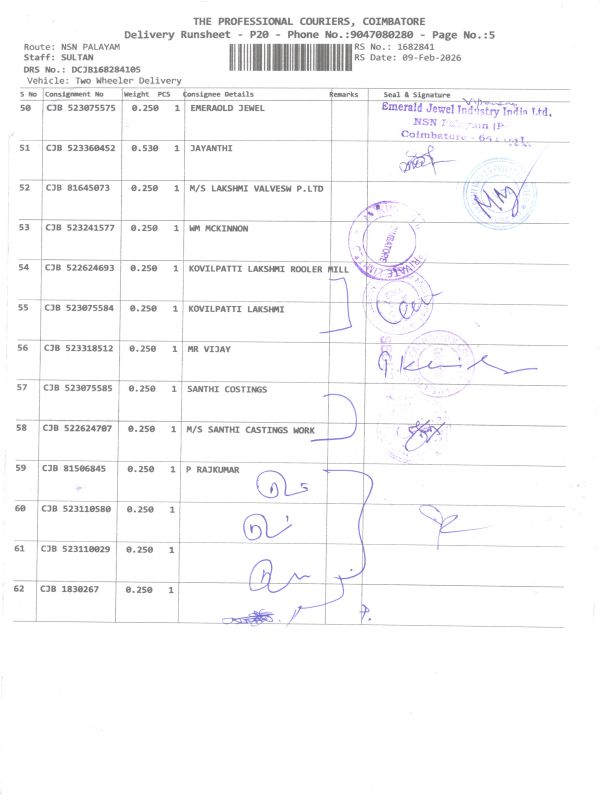 THE PROFESSIONAL COURIERS, COIMBATORE
Delivery Runsheet - P20 - Phone No.:9047080280 - Page No.:5
Route: NSN PALAYAM
RS No.: 1682841
Staff: SULTAN
RS Date: 09-Feb-2026
DRS No.: DCJB168284105
Vehicle: Two Wheeler Delivery
S No Consignment No Weight PCS Consignee Details Remarks Seal & Signature
50 CJB 523075575 0.250 1 EMERAOLD JEWEL
Emerald Jewel Industry India Ltd,
NSN
Coimbatore - 641
51 CJB 523360452 0.530 1 JAYANTHI
52 CJB 81645073 0.250 1 M/S LAKSHMI VALVESW P.LTD
53 CJB 523241577 0.250 1 WM MCKINNON
54 CJB 522624693 0.250 1 KOVILPATTI LAKSHMI ROOLER MILL
55 CJB 523075584 0.250 1 KOVILPATTI LAKSHMI
56 CJB 523318512 0.250 1 MR VIJAY
57 CJB 523075585 0.250 1 SANTHI COSTINGS
58 CJB 522624707 0.250 1 M/S SANTHI CASTINGS WORK
59 CJB 81506845 0.250 1 P RAJKUMAR
60 CJB 523110580 0.250 1
61 CJB 523110029 0.250 1
62 CJB 1830267 0.250 1